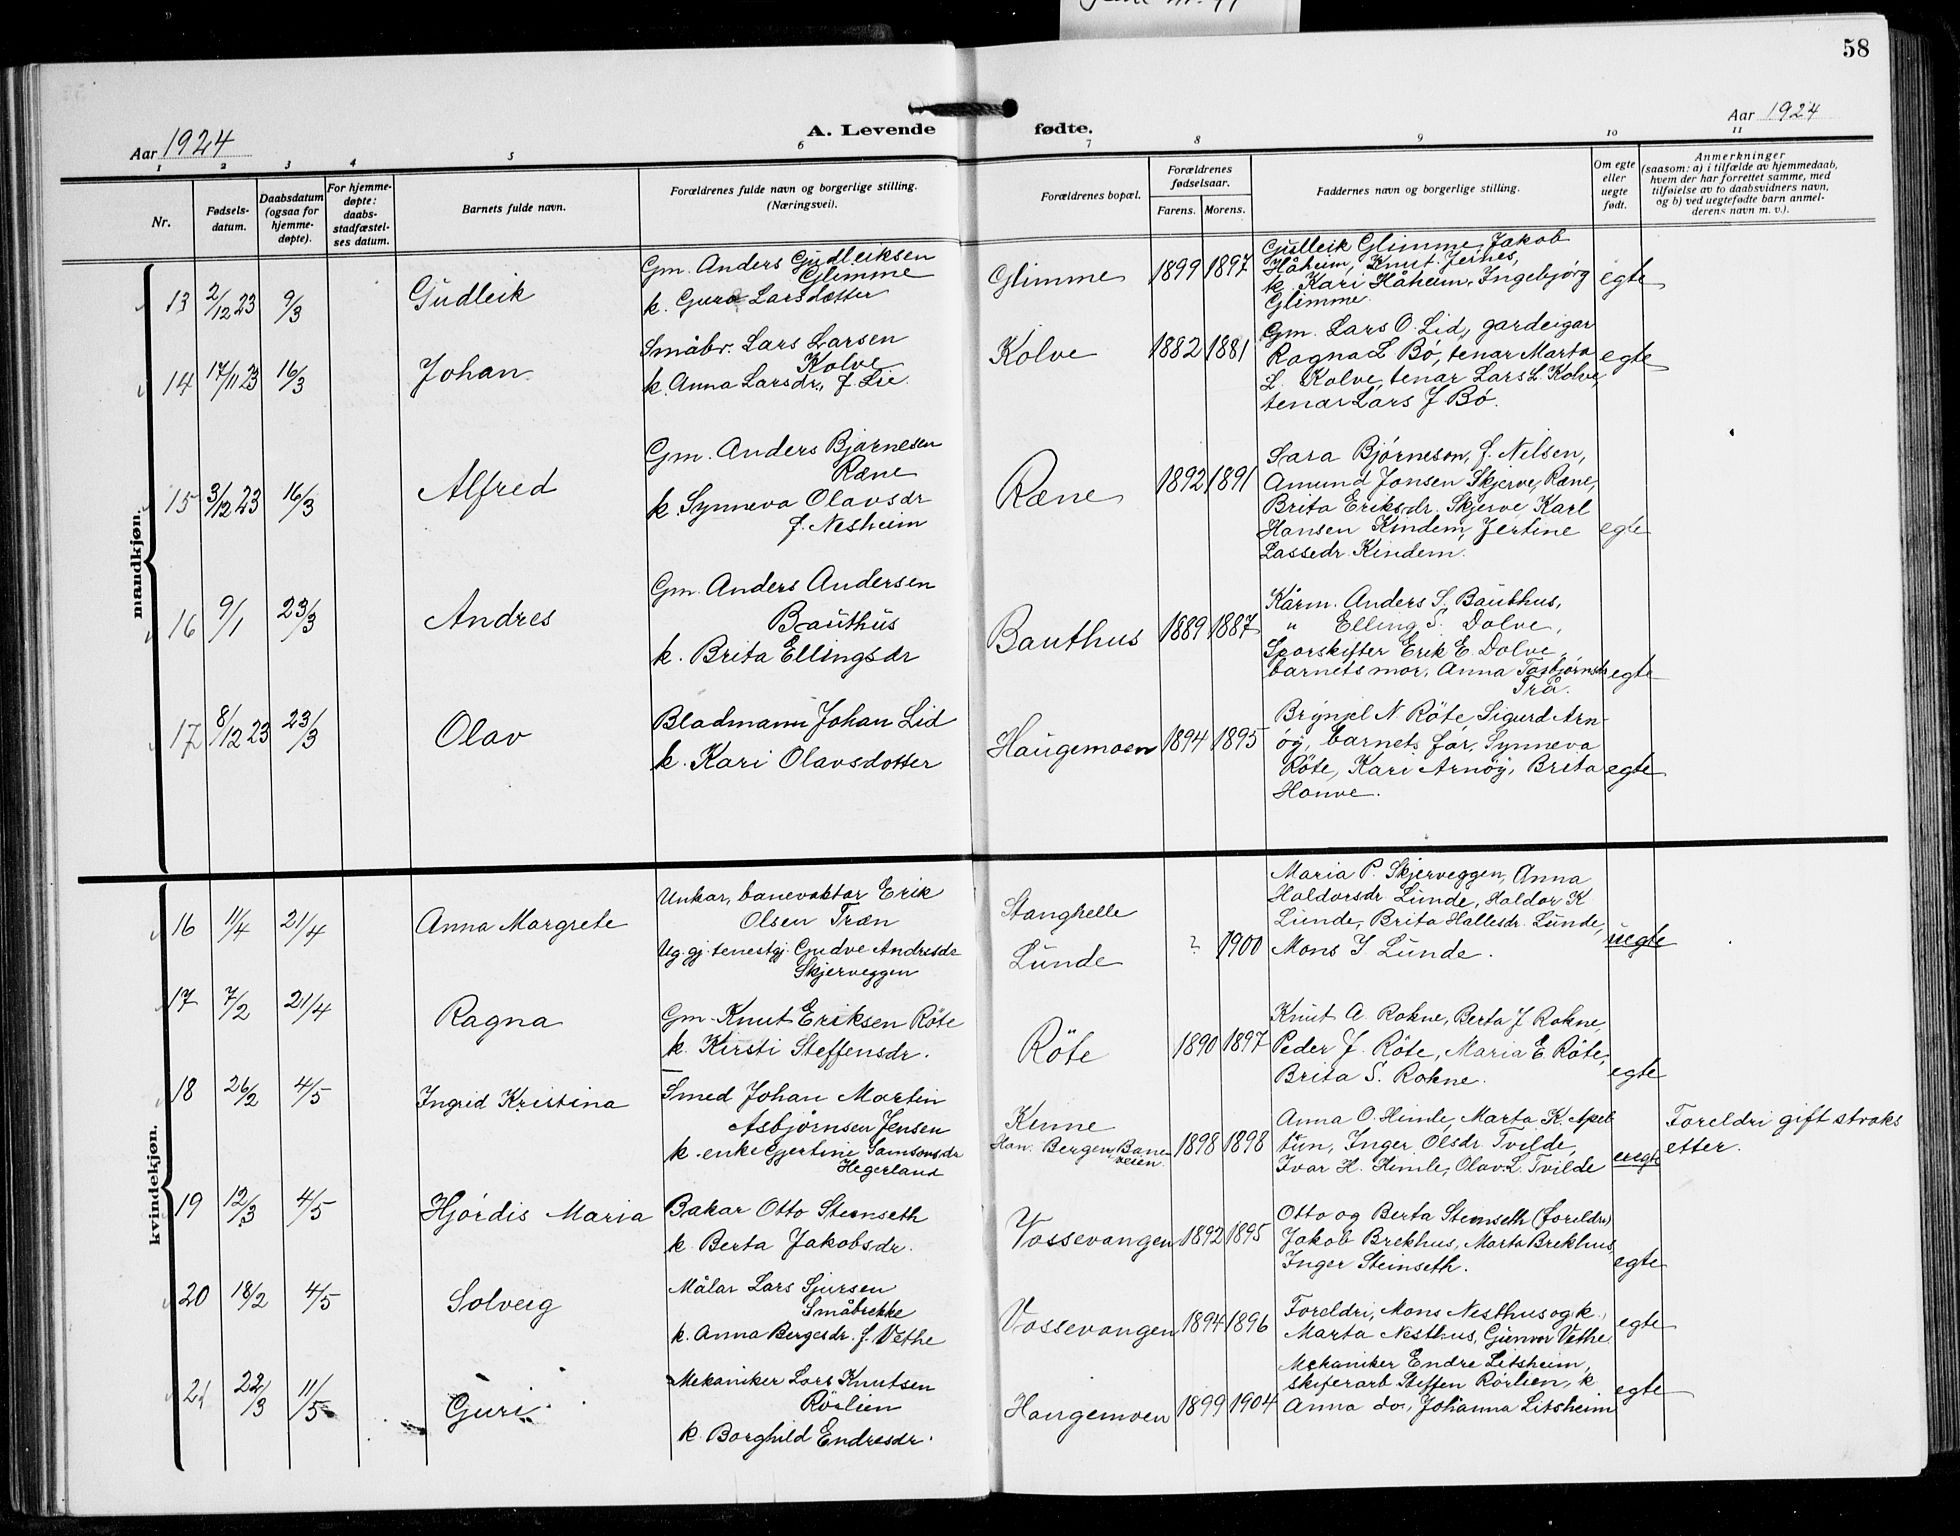 58
Aar 1924
A. Levende fødte.
Aar 1924
1 2 3 4 5 6 7 8 9 10 11
Nr.
Fødsels-
datum.
Daabsdatum
(ogsaa for
hjemme-
døpte).
For hjemme-
døpte:
daabs-
stadfæstel-
ses datum.
Barnets fulde navn.
Forældrenes fulde navn og borgerlige stilling.
(Næringsvei).
Forældrenes bopæl.
Forældrenes
fødselsaar.
Farens. Morens.
Faddernes navn og borgerlige stilling.
Om egte
eller
uegte
født.
Anmerkninger
(saasom: a) i tilfælde av hjemmedaab,
hvem der har forrettet samme, med
tilføielse av to daabsvidners navn,
og b) ved uegtefødte barn anmel-
derens navn m. v.).
mandkjøn.
13 2/12 23 9/3 Gudleik
Gm. Anders Gudleiksen
Glimme
k. Guro Larsdotter
Glimme 1899 1897
Gulleik Glimme, Jakob
Håheim, Knut Jernes,
k. Kari Håheim, Ingebjørg
Glimme.
egte
14 17/11 23 16/3 Johan
Småbr. Lars Larsen
Kolve
k. Anna Larsdr., f. Lie.
Kolve 1882 1881
Gm. Lars O. Lid, gardeigar
Ragna L Bø, tenar Marta
L. Kolve, tenar Lars L. Kolve,
tenar Lars J. Bø.
egte
15 3/12 23 16/3 Alfred
Gm. Anders Bjørnesen
Ræne
k. Synneva Olavsdr
f. Nesheim
Ræne 1892 1891
Sara Bjørneson, f. Nilsen,
Amund Jonsen Skjerve, Ræne,
Brita Eriksdr. Skjerve, Karl
Hansen Kindem, Jertine
Lassedr. Kindem.
egte
16 9/1 23/3 Andres
Gm. Anders Andersen
Bauthus
k. Brita Ellingsdr
Bauthus 1889 1887
Kårm. Anders S. Bauthus,
" Elling S. Dolve,
Sporskifter Erik E. Dolve,
barnets mor, Anna Torbjørnsdr
Trå.
egte
17 8/12 23 23/3 Olav
Bladmann Johan Lid
k. Kari Olavsdotter
Haugemoen 1894 1895
Brynjel N Röte, Sigurd Arn-
øy, barnets far, Synneva
Röte, Kari Arnøy, Brita
Honve.
egte
kvindekjøn.
16 11/4 21/4 Anna Margrete
Unkar, banevaktar Erik
Olsen Træn
Ug. gj. tenestgj. Gudve Andresdr
Skjerveggen
Stanghelle
Lunde ? 1900
Maria P. Skjerveggen, Anna
Haldorsdr. Lunde, Haldor K
Lunde, Brita Hallesdr. Lunde,
Mons I Lunde.
uegte
17 7/2 21/4 Ragna
Gm. Knut Eriksen Röte
k. Kirsti Steffensdr.
Röte 1890 1897
Knut A Rokne, Berta J Rokne,
Peder J. Röte, Maria E. Röte,
Brita S. Rokne.
egte
18 26/2 4/5 Ingrid Kristina
Smed Johan Martin
Asbjørnsen Jensen
k. enke Gjertine Samsonsdr
Hegerland
Kinne
Han: Bergen, Bane-
veien. 1898 1898
Anna O. Himle, Marta K. Apel-
tun, Inger Olsdr. Tvilde,
Ivar H. Himle, Olav L. Tvilde
uegte
Foreldri gift straks
etter.
19 12/3 4/5 Hjørdis Maria
Bakar Otto Steinseth
k. Berta Jakobsdr.
Vossevangen 1892 1895
Otto og Berta Steinseth (foreldri)
Jakob Brekhus, Marta Brekhus
Inger Steinseth.
egte
20 18/2 4/5 Solveig
Målar Lars Sjursen
Småbrekke
k. Anna Bergesdr. f. Vethe
Vossevangen 1894 1896
Foreldri, Mons Nesthus og k.
Marta Nesthus, Gunvor Vethe
egte
21 22/3 11/5 Guri
Mekaniker Lars Knutsen
Rörlien
k. Borghild Endresdr.
Haugemoen 1899 1904
Mekaniker Endre Litsheim,
skiferarb Steffen Rörlien, k
Anna do, Johanna Litsheim
egte